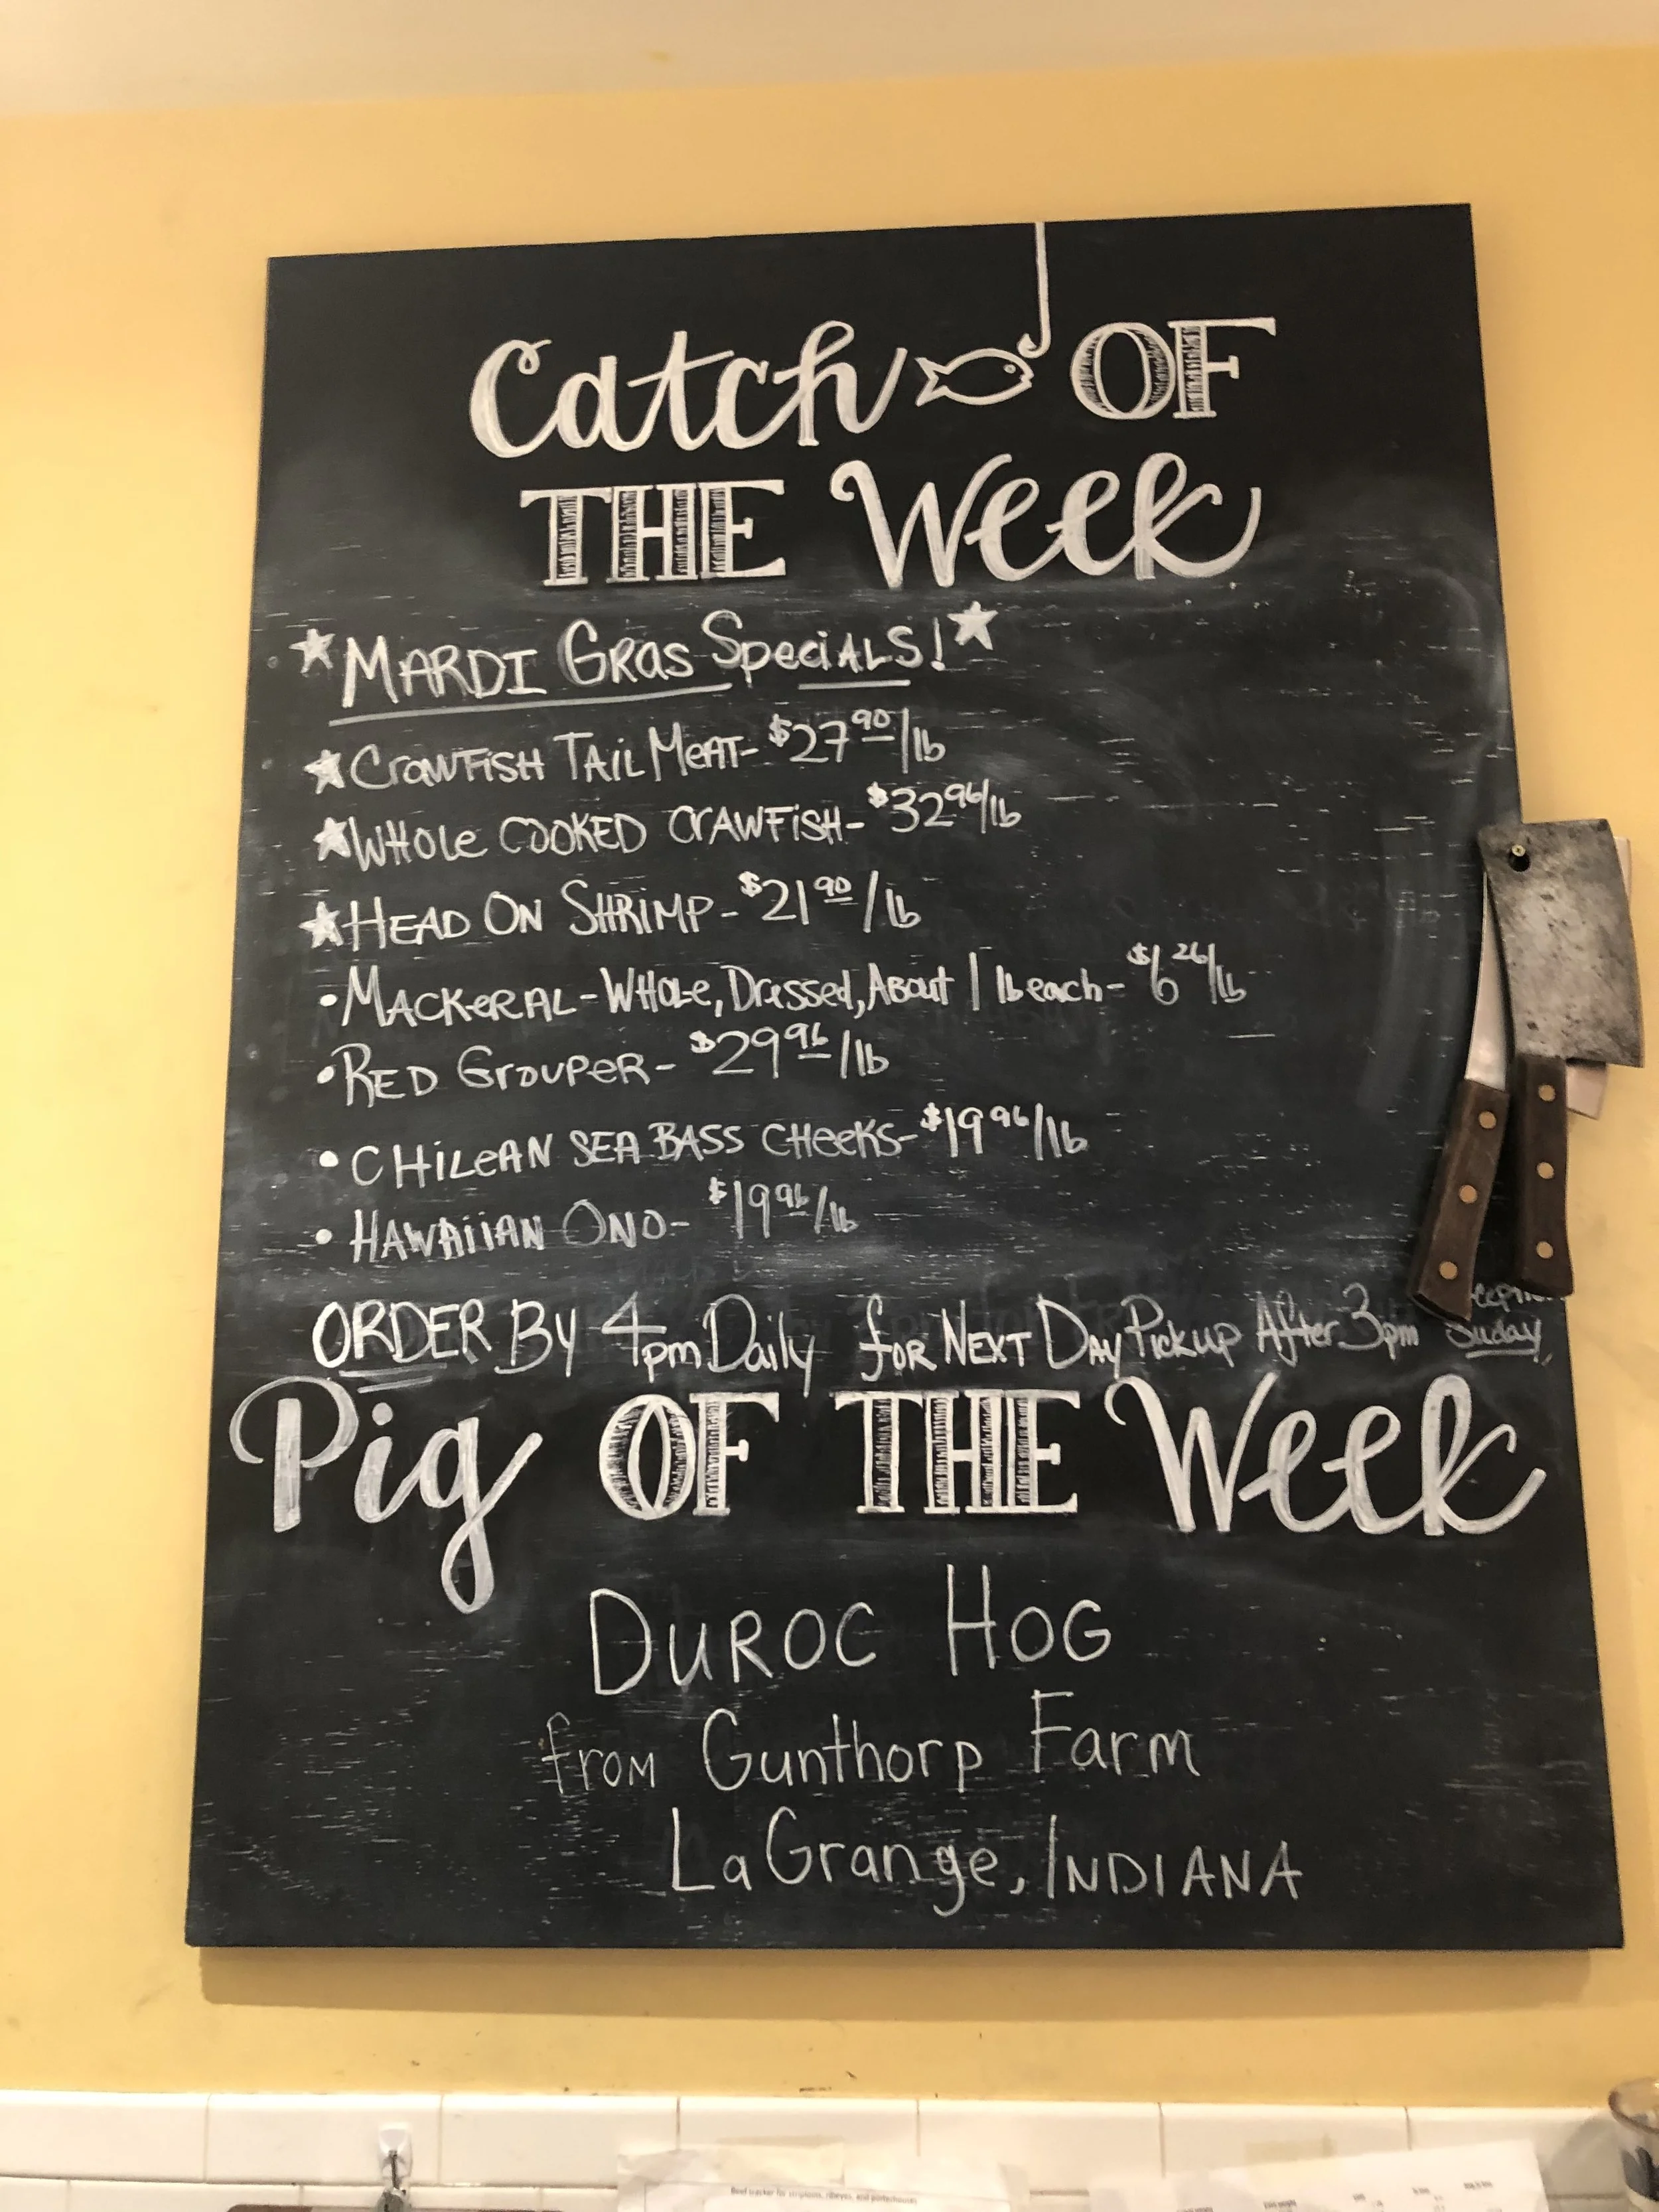 Catch OF
THE Week
MARDI GRAS SPECIALS!
CRAWFISH TAIL MEAT- $27.90/lb
WHOLE COOKED CRAWFISH- $32.96/lb
HEAD ON SHRIMP- $21.90/lb
•MACKERAL-WHOLE, DRESSED, ABOUT 1 lb each- $6.26/lb
•RED GROUPER- $29.96/lb
•CHILEAN SEA BASS CHEEKS- $19.96/lb
•HAWAIIAN ONO- $19.96/lb
ORDER BY 4pm Daily for NEXT DAY Pickup After 3pm Suday
Pig OF THE Week
DUROC HOG
from Gunthorp Farm
LaGrange, INDIANA